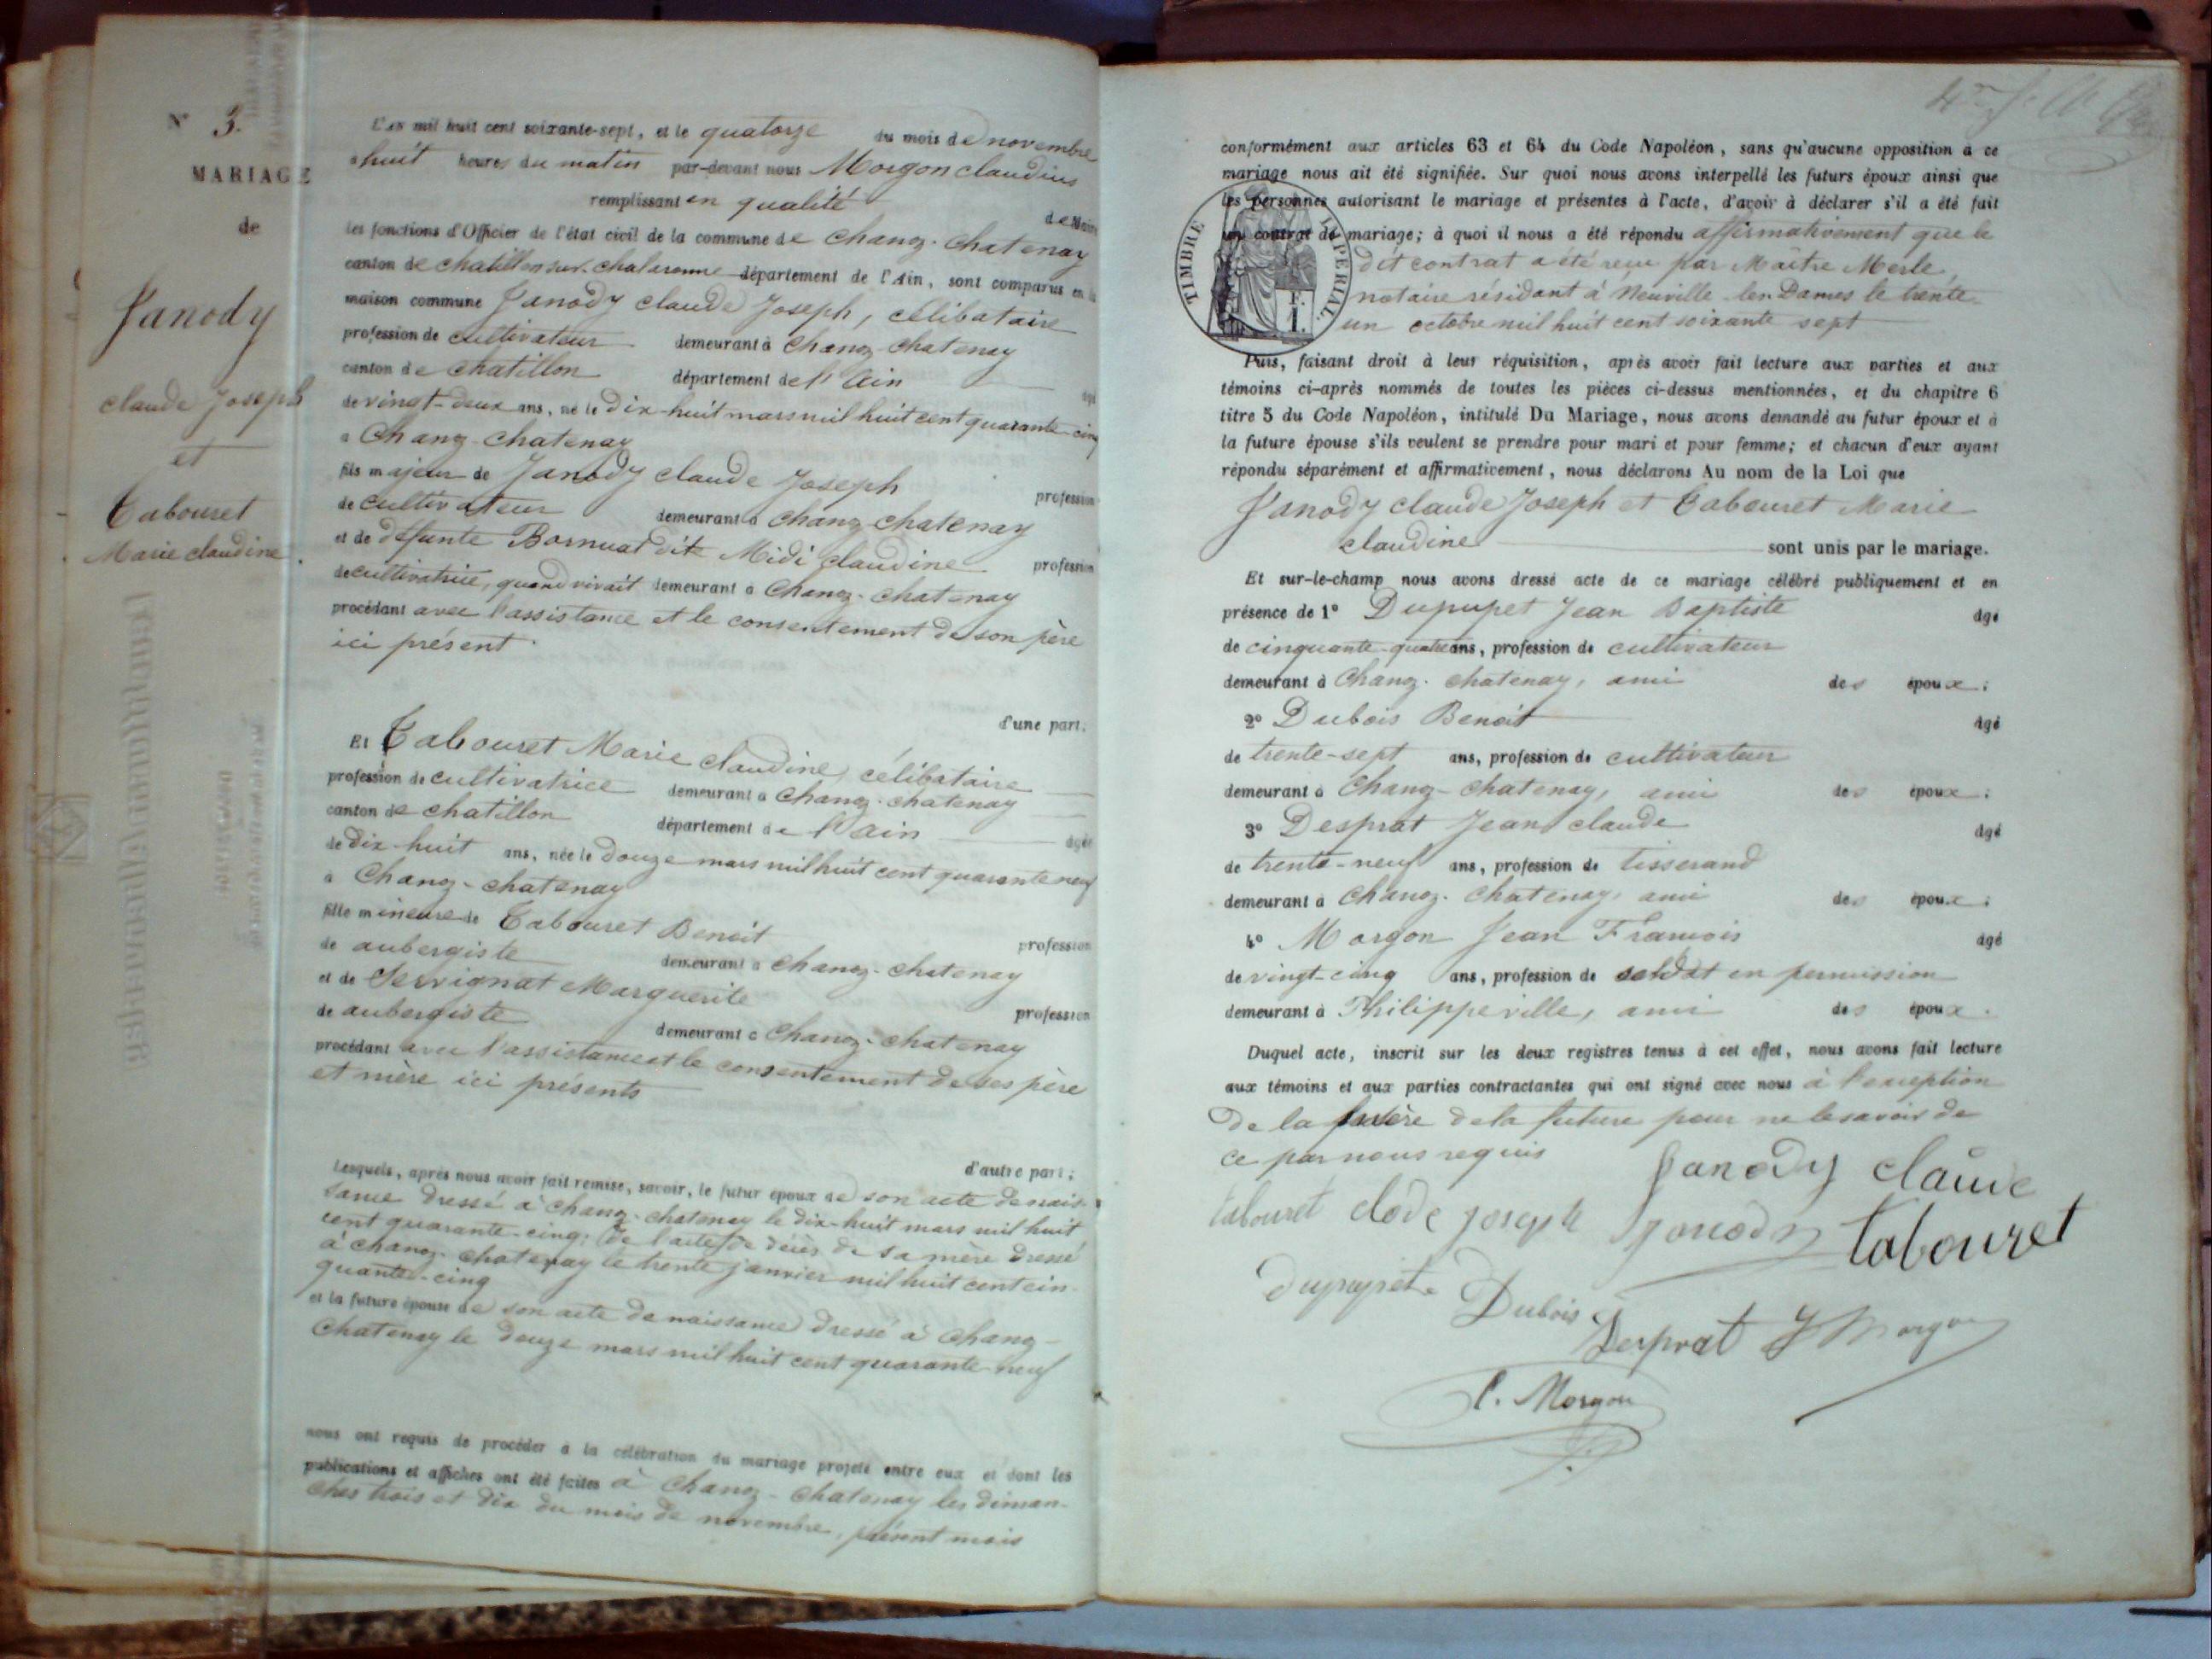 N° 3.
MARIAGE
de
Janody
claude Joseph
et
Tabouret
Marie claudine
L'an mil huit cent soixante-sept, et le quatorze du mois de novembre
à huit heures du matin par-devant nous Morgon claudius
remplissant en qualité de Maire
les fonctions d'Officier de l'état civil de la commune de Chanoz-Chatenay
canton de chatillon sur-chalaronne département de l'Ain, sont comparus en la
maison commune Janody claude Joseph, célibataire
profession de cultivateur demeurant à Chanoz-chatenay
canton de chatillon département de l'Ain âgé
de vingt-deux ans, né le dix-huit mars mil huit cent quarante cinq
à Chanoz-chatenay
fils majeur de Janody claude Joseph profession
de cultivateur demeurant à Chanoz-chatenay
et de défunte Bornuat dite Midi claudine profession
de cultivatrice, quand vivait demeurant à Chanoz-chatenay
procédant avec l'assistance et le consentement de son père
ici présent
d'une part.
Et Tabouret Marie claudine, célibataire
profession de cultivatrice demeurant à Chanoz-chatenay
canton de chatillon département de l'Ain âgée
de dix-huit ans, née le douze mars mil huit cent quarante neuf
à Chanoz-chatenay
fille mineure de Tabouret Benoit profession
de aubergiste demeurant à Chanoz-chatenay
et de Servignat Marguerite profession
de aubergiste demeurant à Chanoz-chatenay
procédant avec l'assistance et le consentement de ses père
et mère ici présents
d'autre part;
Lesquels, après nous avoir fait remise, savoir, le futur époux de son acte de nais-
sance dressé à Chanoz-chatenay le dix-huit mars mil huit
cent quarante-cinq; de l'acte de décès de sa mère dressé
à chanoz-chatenay le trente janvier mil huit cent cin-
quante-cinq
et la future épouse de son acte de naissance dressé à Chanoz-
Chatenay le douze mars mil huit cent quarante-neuf
nous ont requis de procéder à la célébration du mariage projeté entre eux et dont les
publications et affiches ont été faites à Chanoz-Chatenay les diman-
ches trois et dix du mois de novembre, présent mois
conformément aux articles 63 et 64 du Code Napoléon, sans qu'aucune opposition à ce
mariage nous ait été signifiée. Sur quoi nous avons interpellé les futurs époux ainsi que
les personnes autorisant le mariage et présentes à l'acte, d'avoir à déclarer s'il a été fait
un contrat de mariage; à quoi il nous a été répondu affirmativement que le
dit contrat a été reçu par Maître Merle,
notaire résidant à Neuville-les-Dames le trente
un octobre mil huit cent soixante sept
TIMBRE IMPÉRIAL
F.
1.
Puis, faisant droit à leur réquisition, après avoir fait lecture aux parties et aux
témoins ci-après nommés de toutes les pièces ci-dessus mentionnées, et du chapitre 6
titre 5 du Code Napoléon, intitulé Du Mariage, nous avons demandé au futur époux et à
la future épouse s'ils veulent se prendre pour mari et pour femme; et chacun d'eux ayant
répondu séparément et affirmativement, nous déclarons Au nom de la Loi que
Janody claude Joseph et Tabouret Marie
claudine sont unis par le mariage.
Et sur-le-champ nous avons dressé acte de ce mariage célébré publiquement et en
présence de 1° Dupupet Jean Baptiste âgé
de cinquante-quatre ans, profession de cultivateur
demeurant à Chanoz-chatenay, ami des époux;
2° Dubois Benoit âgé
de trente-sept ans, profession de cultivateur
demeurant à Chanoz-chatenay, ami des époux;
3° Desprat Jean claude âgé
de trente-neuf ans, profession de tisserand
demeurant à Chanoz-Chatenay, ami des époux;
4° Morgon Jean François âgé
de vingt-cinq ans, profession de soldat en permission
demeurant à Philippeville, ami des époux.
Duquel acte, inscrit sur les deux registres tenus à cet effet, nous avons fait lecture
aux témoins et aux parties contractantes qui ont signé avec nous à l'exception
de la mère de la future pour ne le savoir de
ce par nous requis
Janody claude
tabouret clode joseph jonody tabouret
dupupet Dubois
Desprat J Morgon
C. Morgon